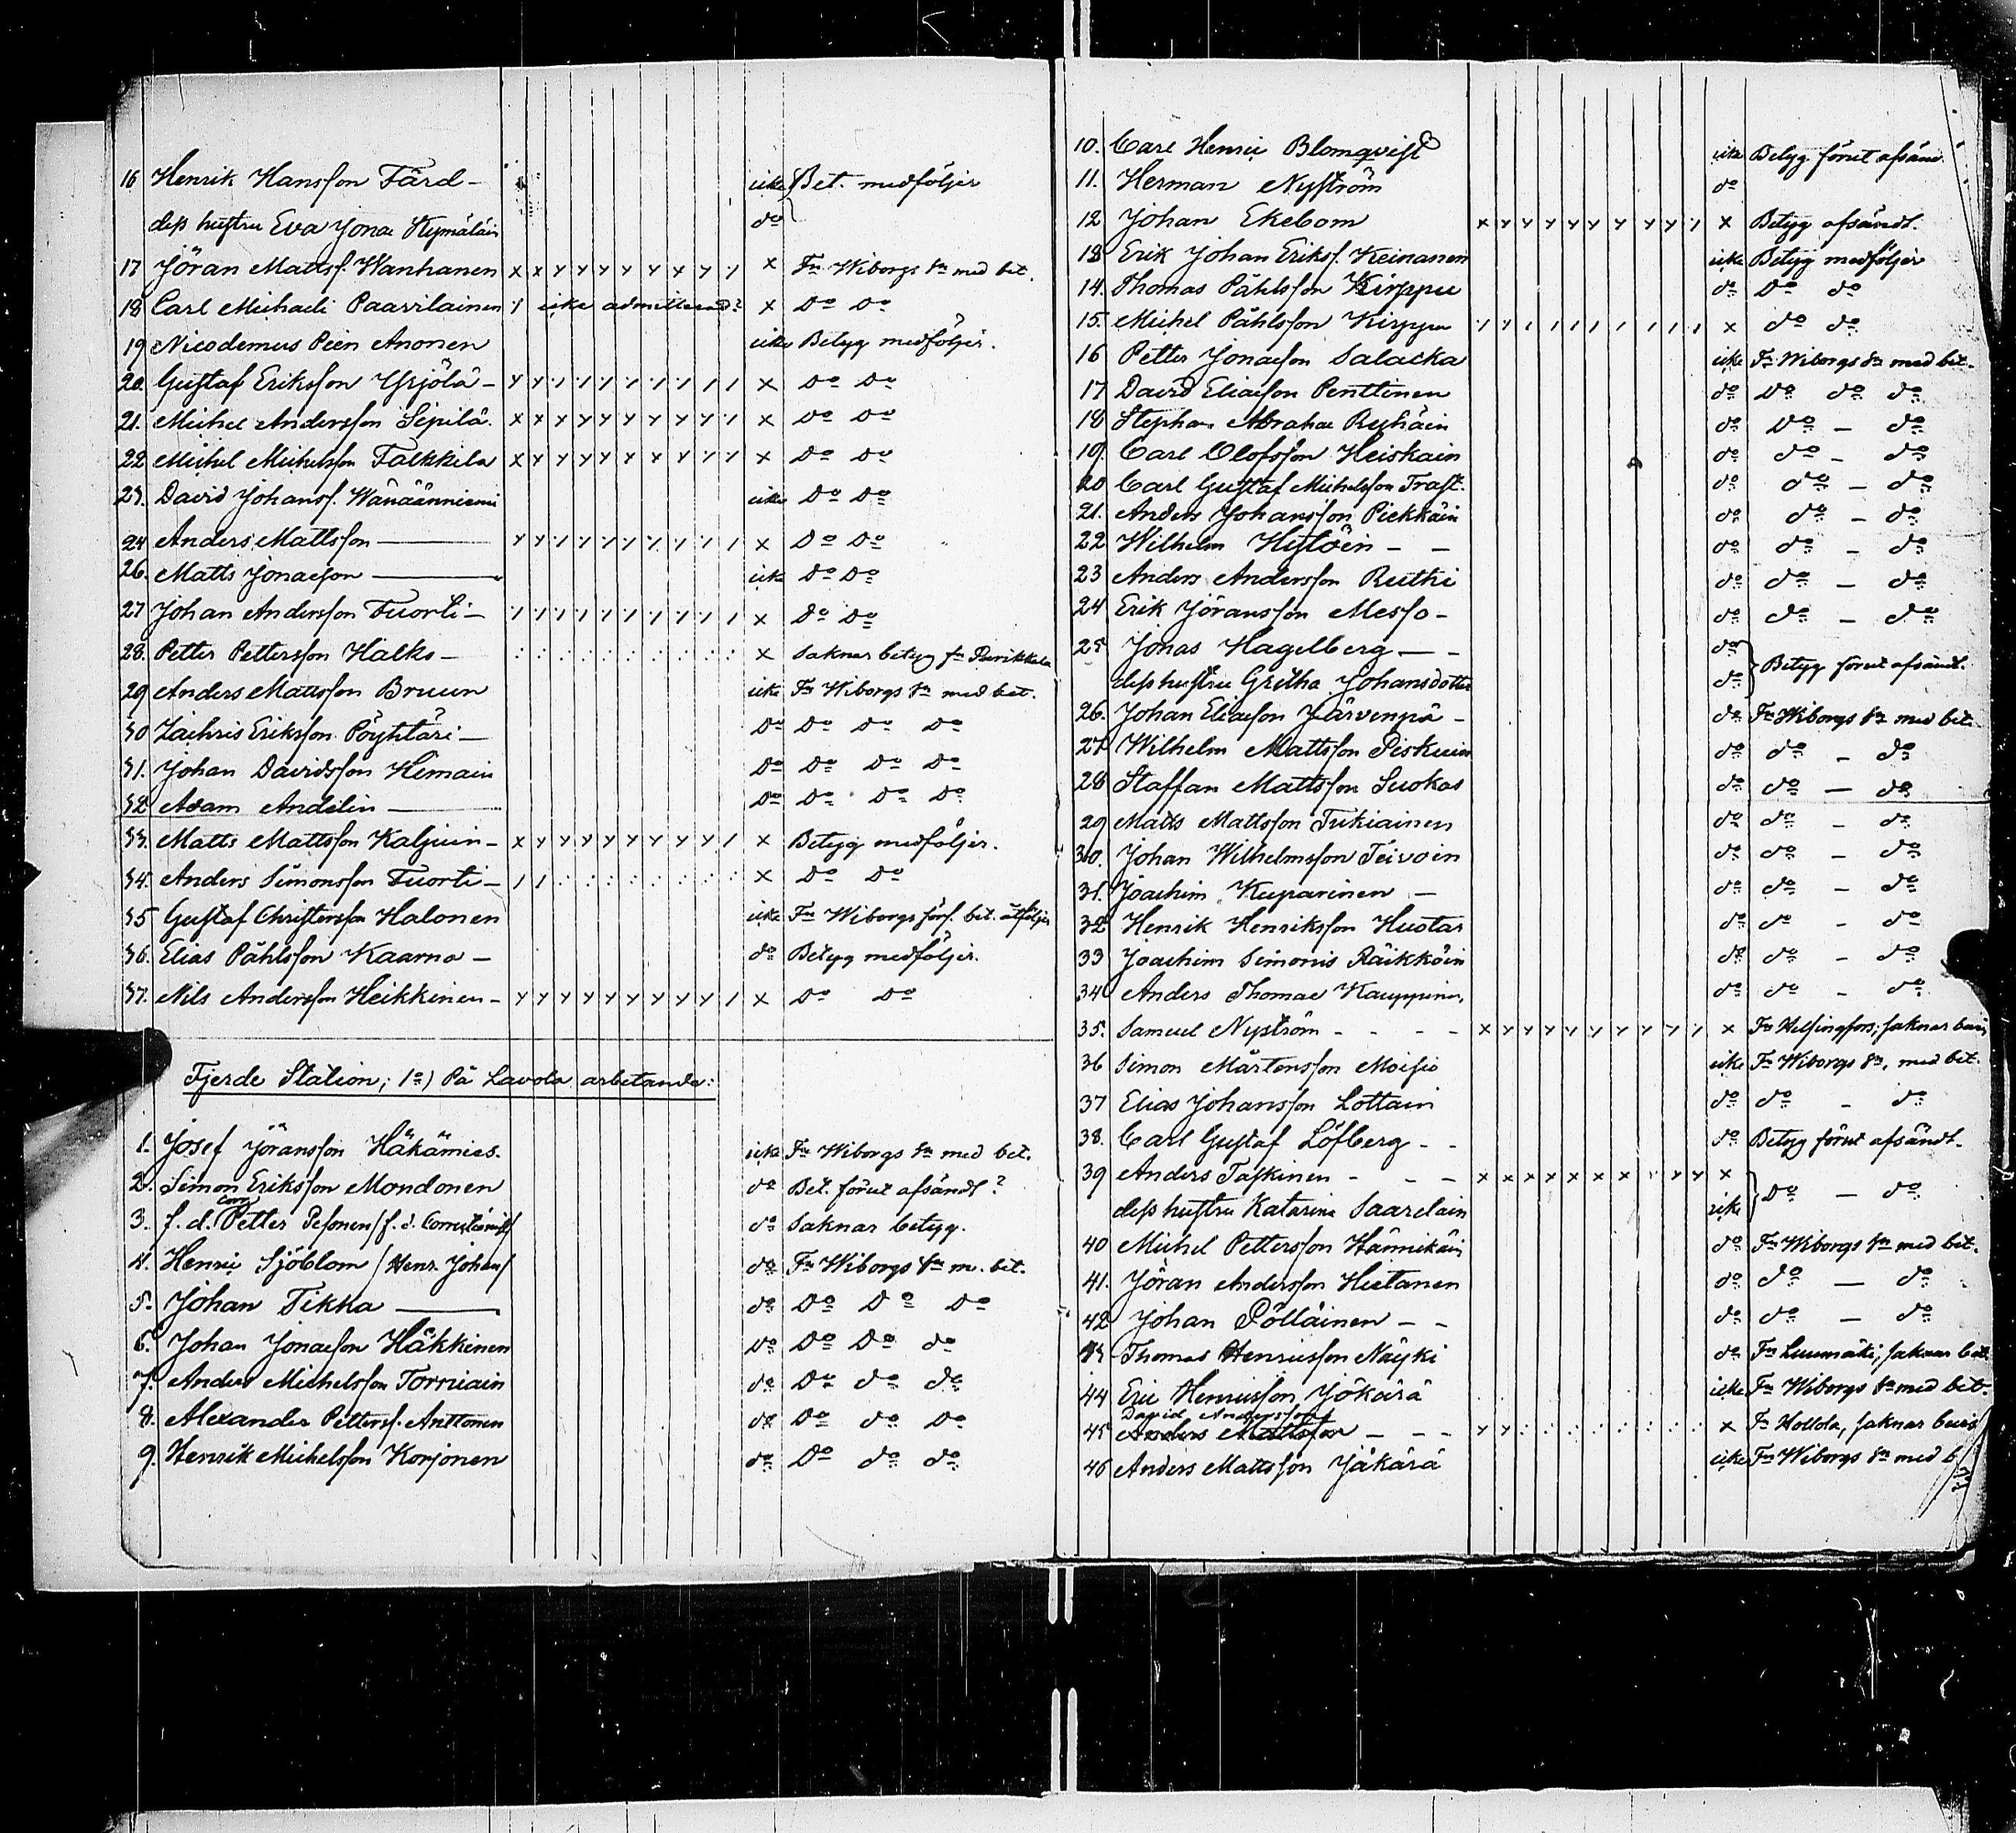 16 Henrik Hansson Färd - icke Bet. medföljer
dess hustru Eva Jonae Hymäläin do
17 Jöran Mattss. Wanhanen x x y y y y y x y ·/. x Fn Wiborgs sn med bet.
18 Carl Michaeli Paavilainen ·/. icke admitterad? x Do Do
19 Nicodemus Peen Anonen icke Betyg medföljer.
20. Gustaf Eriksson Yrjölä - x Do Do
21. Michel Andersson Sipilä. x x y y y y y y y ·/. x Do Do
22 Michel Michelsson Falkkila x Do Do
23. David Johanss. Wänäänniemi icke Do Do
24 Anders Mattsson - x Do Do
26. Matts Jonaeson - icke Do Do
27 Johan Andersson Tuorti - x Do Do
28. Petter Pettersson Halko - x saknar betyg fn Parikkala
29 Anders Mattsson Bruun icke Fn Wiborgs sn med bet.
30 Zachris Eriksson Pöyhtäri - Do Do Do Do
31. Johan Davidsson Hemain Do Do Do Do
32 Adam Andelin - Do Do Do Do
33. Matts Mattsson Kaljuin - x y y y y y y y y / x Betyg medföljer.
34. Anders Simonsson Tuorti - / / x Do Do
35 Gustaf Christersson Halonen icke Fn Wiborgs förs. bet. åtföljer
36. Elias Påhlsson Kaarna - do Betyg medföljer.
37. Nils Andersson Heikkinen - y y y y y y y y y / x Do Do
Fjerde Station; 1o) På Lavola arbetande:
1. Josef Jöransson Häkämies. icke Fn Wiborgs sn med bet.
2. Simon Eriksson Mondonen do Bet. förut afsändt?
3. f. d. Corr. Petter Pesonen /f. d. Correctionist/ do Saknar betyg.
4. Henric Sjöblom /Henr. Johan/ do Fn Wiborgs sn m. bet.
5. Johan Tikka - do Do Do Do
6. Johan Jonaeson Häkkinen Do Do Do do
7. Anders Michelsson Torniain do Do do do
8. Alexander Petterss. Anttonen do Do do Do
9. Henrik Michelsson Korjonen do Do do do
10. Carl Henric Blomqvist icke Betyg förut afsänd.
11. Herman Nyström do
12 Johan Ekebom x y y y y y y y y ·/. x Betyg afsändt.
13 Erik Johan Erikss. Keinanen icke Betyg medföljer
14. Thomas Påhlsson Kirppu do Do do
15. Michel Påhlsson Kirppu x do do
16 Petter Jonaeson Salacka icke Fn Wiborgs sn med bet.
17 David Eliaeson Penttinen do Do do do
18 Stephan Abrahae Ryhäin do Do - do
19. Carl Olofsson Heiskain do do - do
20 Carl Gustaf Michelsson Trast. do do - do
21. Anders Johansson Piekkäin do do - do
22 Wilhelm Hyföin - - do do - do
23 Anders Andersson Rutki do do - do
24 Erik Jöransson Messo - do do - do
25 Jonas Hagelberg - - do Betyg förut afsändt.
dess hustru Gretha Johansdotter do
26. Johan Eliaeson Järvenpä - do Fn Wiborgs sn med bet.
27 Wilhelm Mattsson Piskuin do do - do
28 Staffan Mattsson Suokas do do - do
29 Matts Mattsson Tukiainen do do - do
30. Johan Wilhelmsson Teivoin do do - do
31. Joachim Kuparinen - do do - do
32 Henrik Henriksson Hustar do do - do
33 Joachim Simonis Räikköin do do - do
34 Anders Thomae Kauppinn do do - do
35. Samuel Nyström - - - - x y y y y y y y y ·/. x Fn Helsingfors; saknar bevis
36 Simon Mårtensson Moisio icke Fn Wiborgs sn, med bet.
37 Elias Johansson Lottain do do - do
38. Carl Gustaf Löfberg - - do Betyg förut afsändt.
39 Anders Taskinen - - - x Do - do
dess hustru Katarina Saarelain icke
40 Michel Pettersson Hännikäin do Fn Wiborgs sn med bet.
41. Jöran Andersson Hietanen do do - do
42 Johan Pölläinen - - do do - do
43 Thomas Henricsson Näyki do Fn Luumäki; saknar bet.
44 Eric Henricsson Jökärä icke Fn Wiborgs sn med bet.
David Andersson
45 Anders Mattsson - - - x Fn Hollola, saknar bevis
46 Anders Mattsson Jäkärä icke Fn Wiborgs sn med b